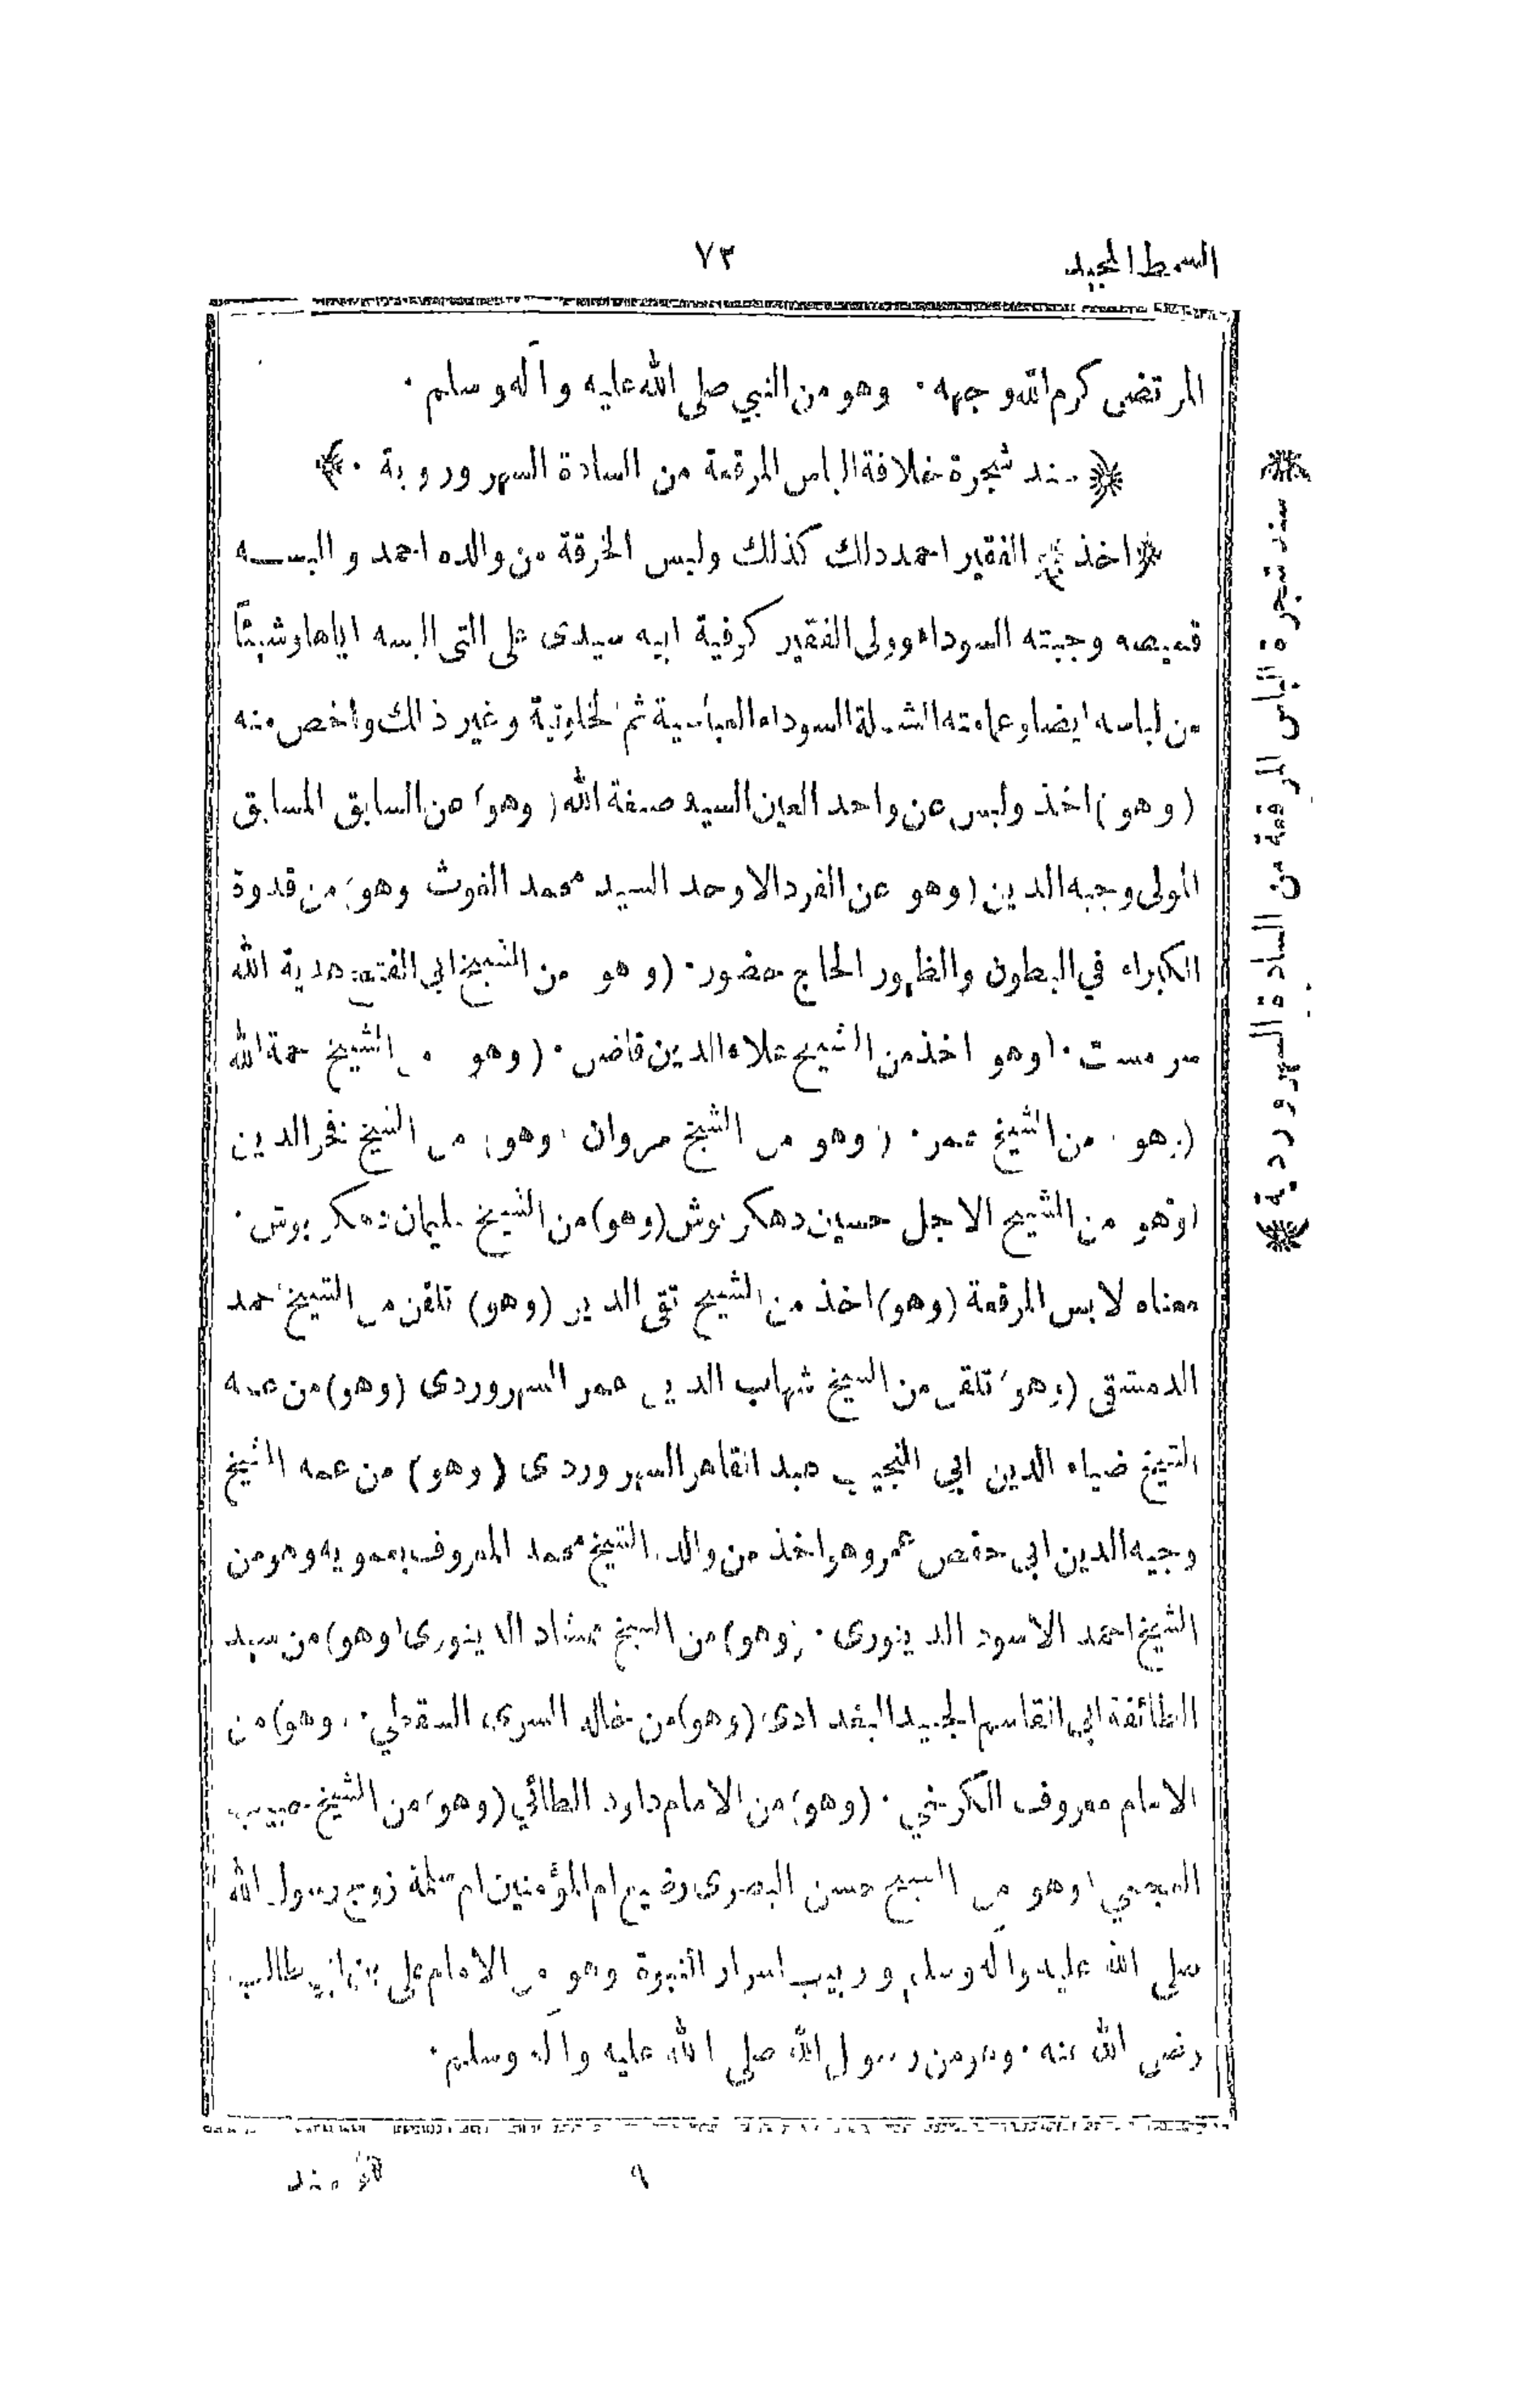 السمط المجيد
٧٣
المرتضى كرم الله وجهه · وهو من النبي صلى الله عليه وآله وسلم ·
سند شجرة خلافة الباس المرقعة من السادة السهروردية ·
اخذ الفقير احمد ذلك كذلك ولبس الخرقة من والده احمد و البسه
قميصه وجبته السوداء وولى الفقير كوفية ابيه سيدى على التى البسه اياها وشيئًا
من لباسه ايضا وعمامته الشملة السوداء العباسية ثم الخلوتية وغير ذالك واخص منه
(وهو) اخذ ولبس عن واحد العين السيد صبغة الله (وهو) عن السابق المسابق
المولى وجيه الدين (وهو عن الفرد الاوحد السيد محمد الغوث وهو) من قدوة
الكبراء في البطون والظهور الحاج حضور · (وهو من الشيخ ابي الفتح هدية الله
سرمست · (وهو اخذ من الشيخ علاء الدين قاضن · (وهو الشيخ الله
(وهو من الشيخ عمر · (وهو من الشيخ مروان (وهو) من الشيخ فخر الدين
(وهو من الشيخ الاجل حسين دهكر پوش (وهو) من الشيخ سليمان دهكر پوش ·
معناه لابس المرقعة (وهو) اخذ من الشيخ تقى الدين (وهو) تلقن من الشيخ احمد
الدمشقى (وهو) تلقن من الشيخ شهاب الدين عمر السهروردى (وهو) من عمه
الشيخ ضياء الدين ابي النجيب عبد القاهر السهروردى (وهو) من عمه الشيخ
وجيه الدين ابي حفص عمر وهو اخذ من والده الشيخ محمد المعروف بعمويه وهو من
الشيخ احمد الاسود الدينورى · (وهو) من الشيخ ممشاد الدينورى (وهو) من سيد
الطائفة ابي القاسم الجنيد البغدادى (وهو) من خاله السرى السقطي · (وهو) من
الامام معروف الكرخي · (وهو) من الامام داود الطائي (وهو) من الشيخ حبيب
العجمي (وهو من الشيخ حسن البصرى رضيع ام المؤمنين ام سلمة زوج رسول الله
صلى الله عليه وآله وسلم وربيب اسرار النبوة وهو من الامام على بن ابي طالب
رضى الله عنه · وهو من رسول الله صلى الله عليه وآله وسلم ·
سند شجرة الباس المرقعة من السادة السهروردية
٩
سند